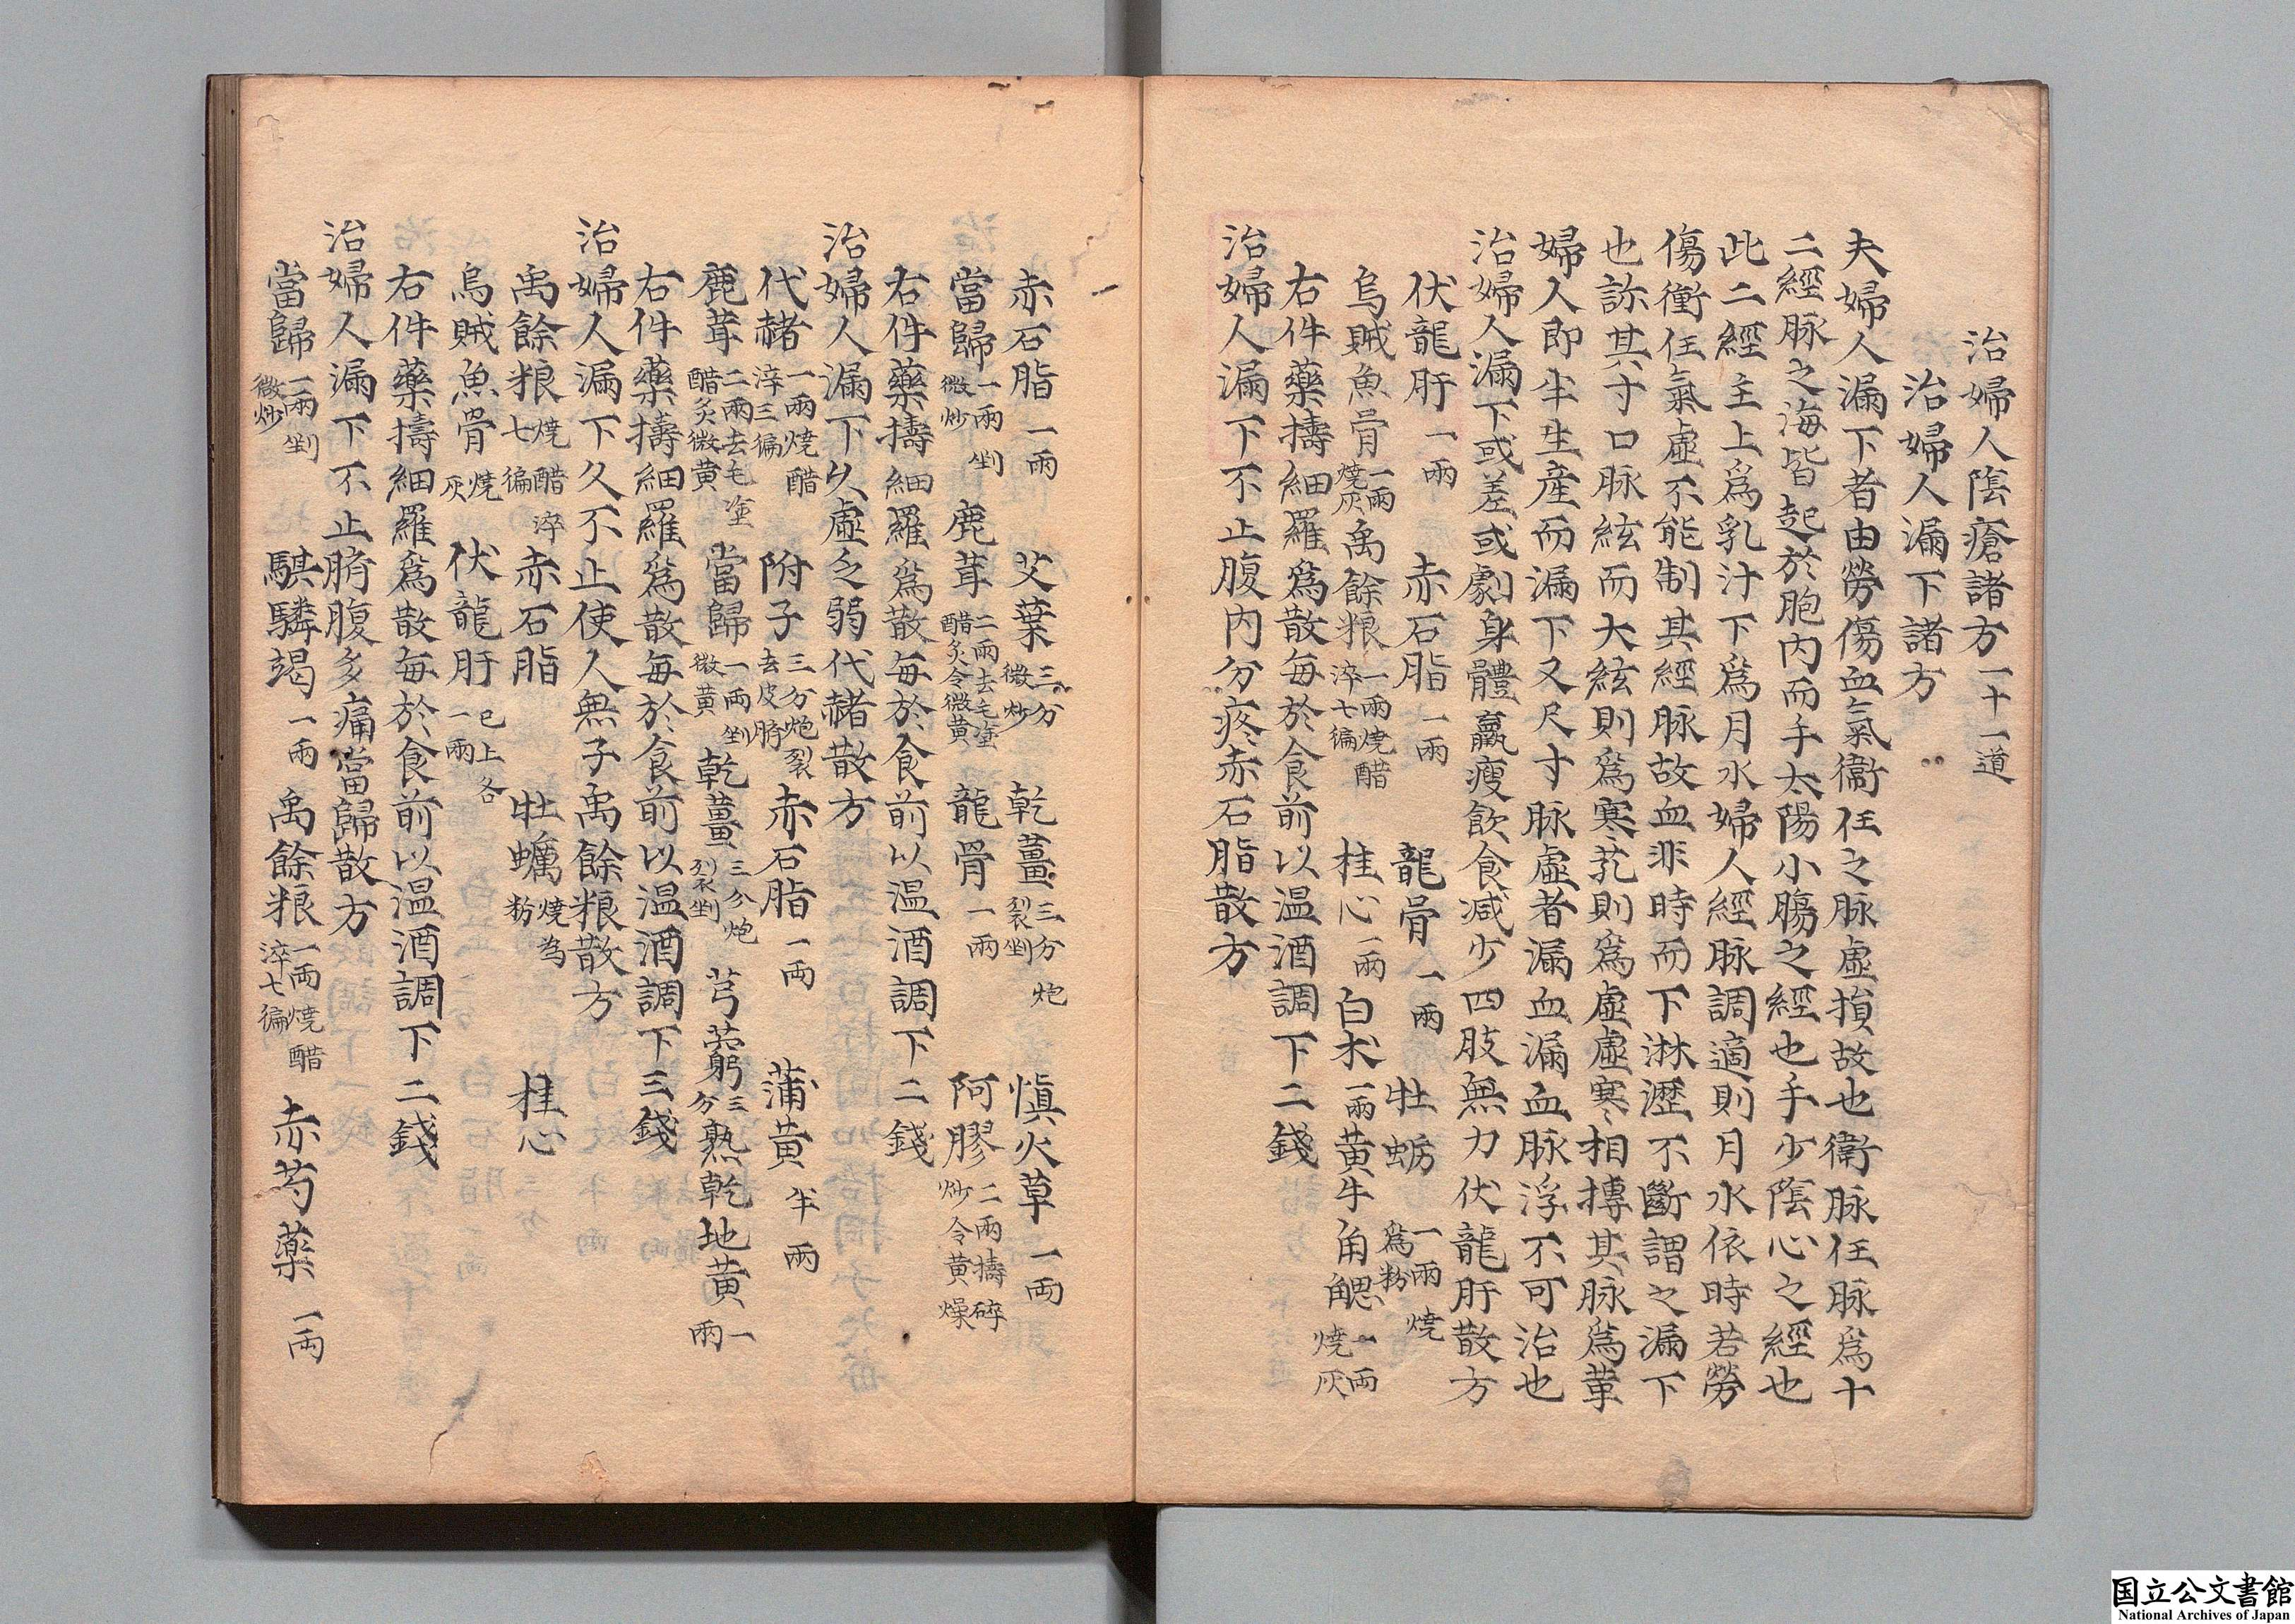 治婦人陰瘡諸方一十一道
治婦人漏下諸方
夫婦人漏下者由勞傷血氣衝任之脉虛損故也衝脉任脉爲十
二經脉之海皆起於胞內而手太陽小腸之經也手少陰心之經也
此二經主上爲乳汁下爲月水婦人經脉調適則月水依時若勞
傷衝任氣虛不能制其經脉故血非時而下淋瀝不斷謂之漏下
也診其寸口脉絃而大絃則爲寒芤則爲虛虛寒相摶其脉爲革
婦人即半生產而漏下又尺寸脉虛者漏血漏血脉浮不可治也
治婦人漏下或差或劇身體羸瘦飲食減少四肢無力伏龍肝散方
伏龍肝一兩 赤石脂一兩 龍骨一兩 牡蛎一兩燒爲粉
烏賊魚骨一兩燒灰 禹餘粮一兩燒醋淬七徧 桂心一兩 白朮一兩 黃牛角䚡一兩燒灰
右件藥擣細羅爲散每於食前以温酒調下二錢
治婦人漏下不止腹內分疼赤石脂散方
赤石脂一兩 艾葉三分微炒 乾薑三分炮裂剉 慎火草一両
當歸一兩剉微炒 鹿茸二兩去毛塗醋炙令微黃 龍骨一兩 阿膠二兩擣碎炒令黃燥
右件藥擣細羅爲散每於食前以温酒調下二錢
治婦人漏下久虛乏弱代赭散方
代赭一兩燒醋淬三徧 附子三分炮裂去皮臍 赤石脂一両 蒲黃半兩
鹿茸二兩去毛塗醋炙微黃 當歸一兩剉微黃 乾薑三分炮裂剉 芎藭三分 熟乾地黃一兩
右件藥擣細羅爲散每於食前以温酒調下三錢
治婦人漏下久不止使人無子禹餘粮散方
禹餘粮燒醋淬七徧 赤石脂 牡蠣燒为粉 桂心
烏賊魚骨燒灰 伏龍肝已上各一兩
右件藥擣細羅爲散每於食前以温酒調下二錢
治婦人漏下不止臍腹多痛當歸散方
當歸一兩剉微炒 騏驎竭一兩 禹餘粮一両燒醋淬七徧 赤芍藥一両
国立公文書館
National Archives of Japan